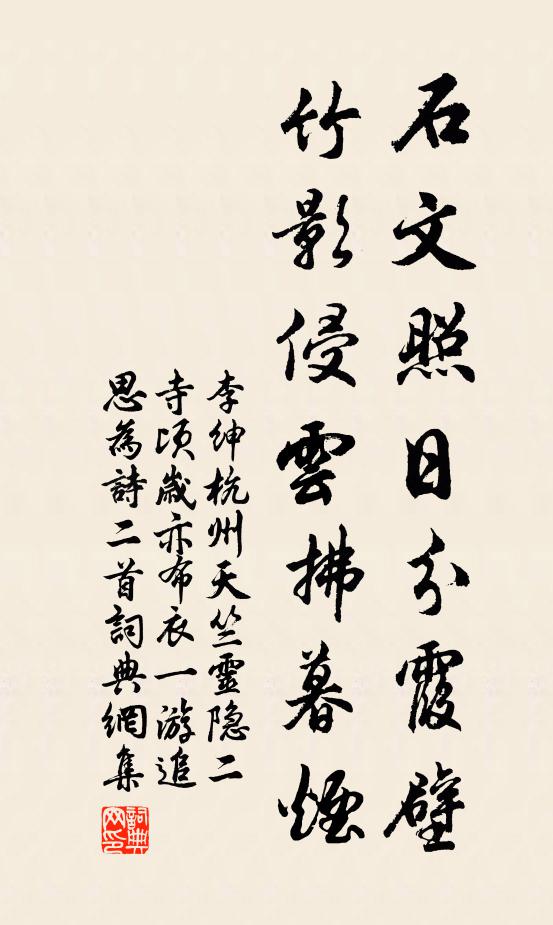 石文照日分霞壁
竹影侵雲拂暮煙
李紳杭州天竺靈隐二
寺頃歲亦布衣一游追
思為詩二首詞典網集
詞典網印